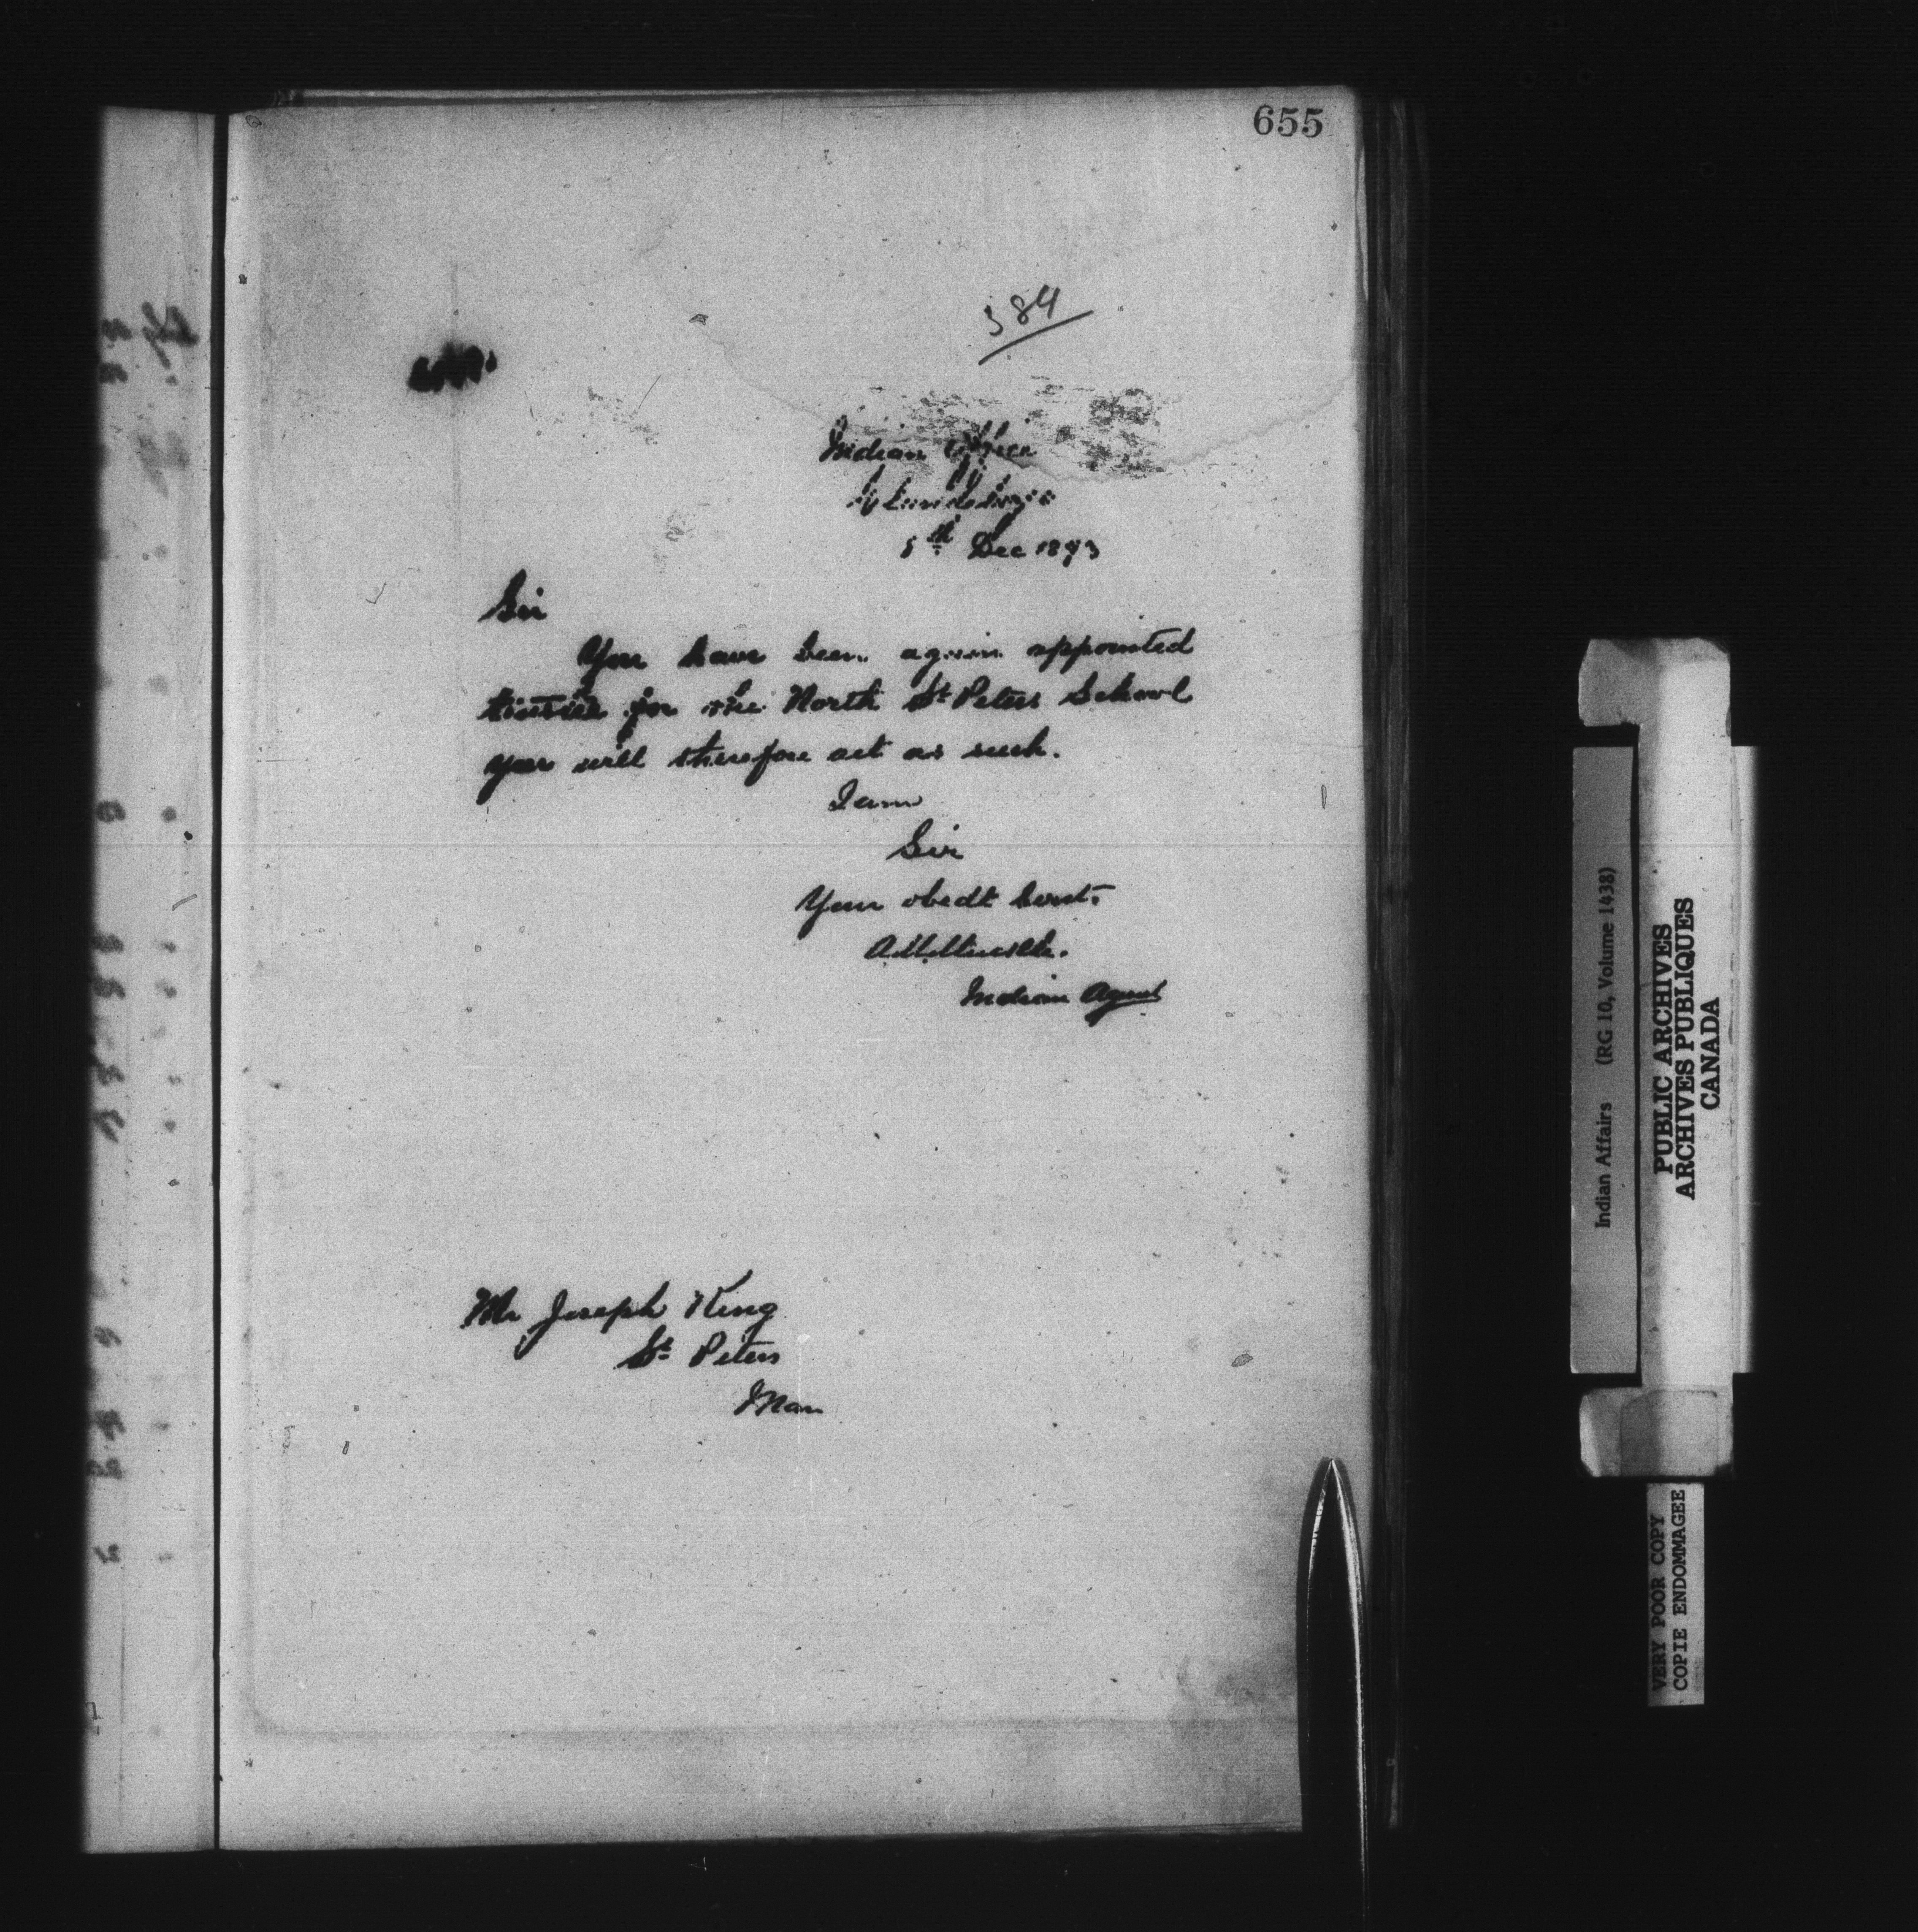 655
384
Indian Office
5th Dec 1893
Sir
You have been again appointed
trustee for the North St Peters School
you will therefore act as such.
I am
Sir
Your obedt Servt.
Indian Agent
Mr Joseph King
St Peters
Man
Indian Affairs (RG 10, Volume 1438)
PUBLIC ARCHIVES
ARCHIVES PUBLIQUES
CANADA
VERY POOR COPY
COPIE ENDOMMAGEE